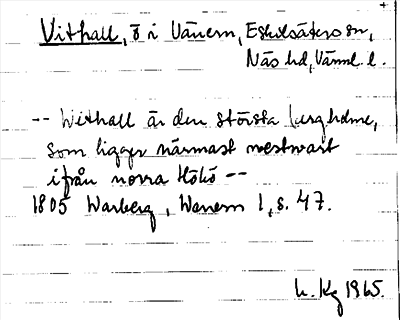 Vithall, ö i Vänern, Eskilsäters sn,
Näs hd, Värml. l.
-- Withall är den största bergholme,
som ligger närmast westwart
ifrån norra Hökö --
1805 Warberg, Wenern 1, s. 47.
h. Kg 1965.